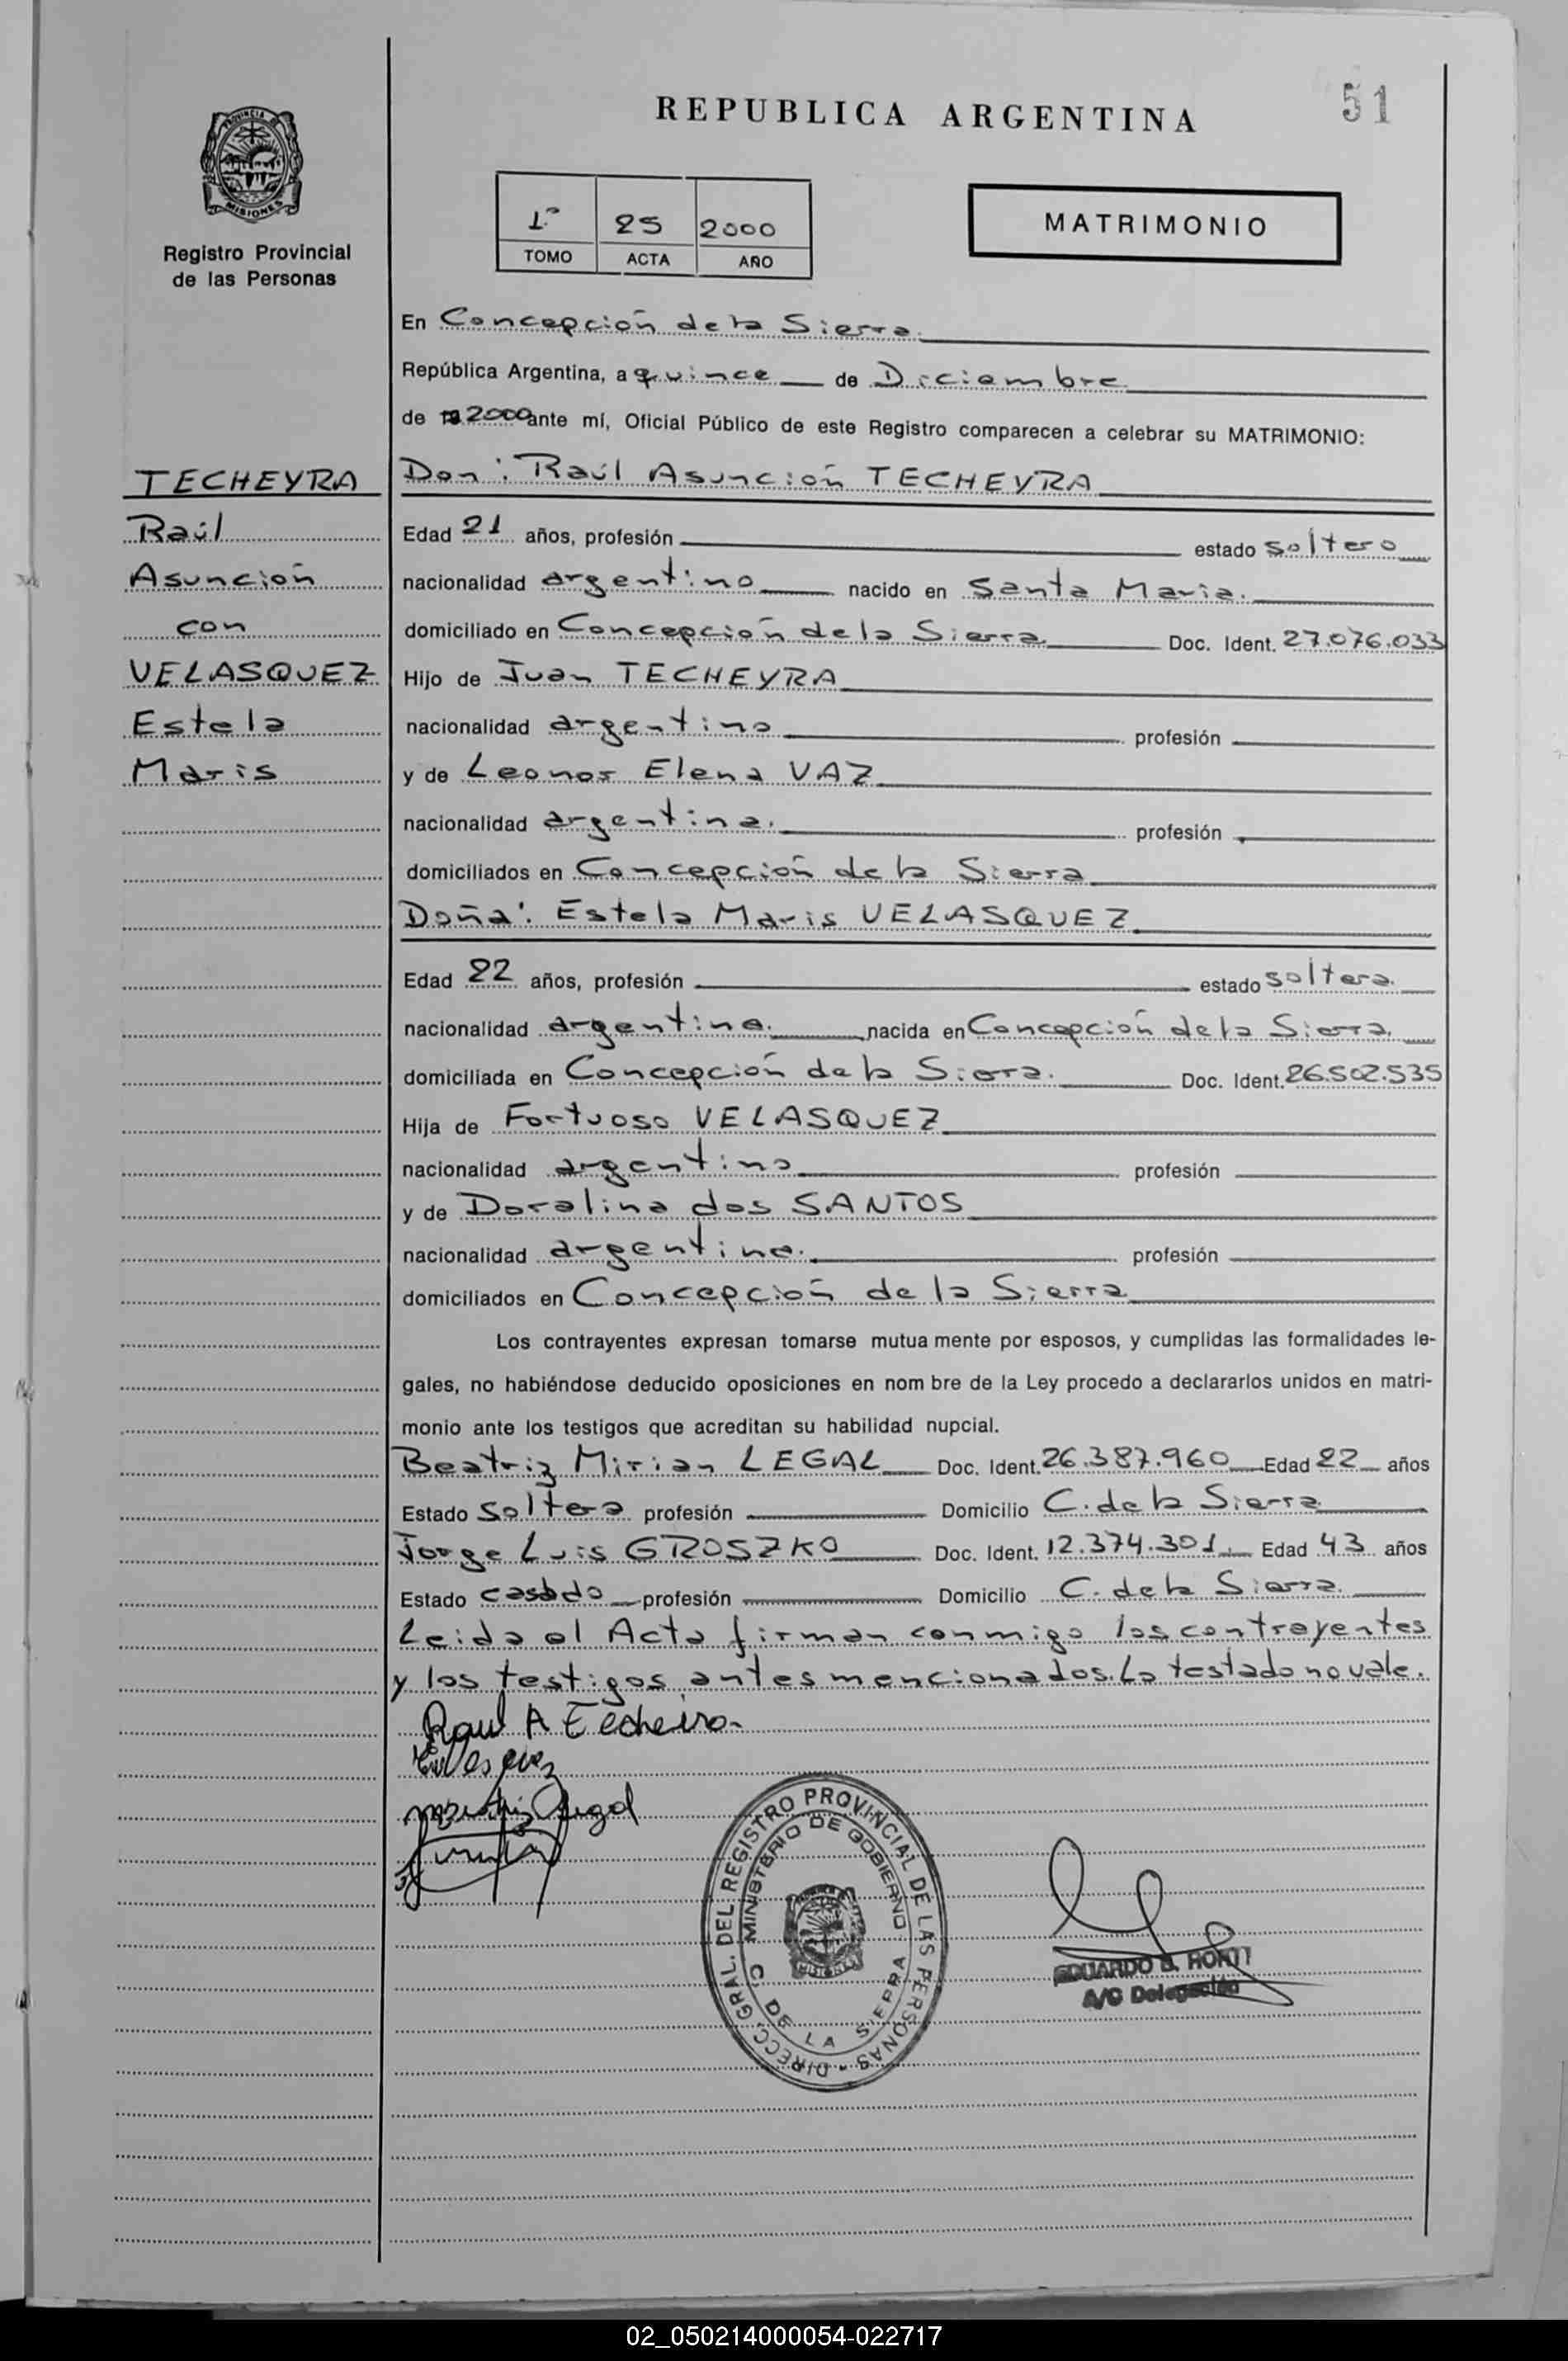 51
REPUBLICA ARGENTINA
PROVINCIA DE
MISIONES
Registro Provincial
de las Personas
1º 25 2000
TOMO ACTA AÑO
MATRIMONIO
En Concepción de la Sierra
República Argentina, a quince de Diciembre
de 2000 ante mí, Oficial Público de este Registro comparecen a celebrar su MATRIMONIO:
TECHEYRA
Raúl
Asunción
con
VELASQUEZ
Estela
Maris
Don: Raúl Asunción TECHEYRA
Edad 21 años, profesión estado soltero
nacionalidad argentino nacido en Santa Maria.
domiciliado en Concepción de la Sierra Doc. Ident. 27.076.033
Hijo de Juan TECHEYRA
nacionalidad argentino profesión
y de Leonor Elena VAZ
nacionalidad argentina. profesión
domiciliados en Concepción de la Sierra
Doña: Estela Maris VELASQUEZ
Edad 22 años, profesión estado soltera.
nacionalidad argentina. nacida en Concepción de la Sierra.
domiciliada en Concepción de la Sierra. Doc. Ident. 26.502.535
Hija de Fortuoso VELASQUEZ
nacionalidad argentino profesión
y de Doralina dos SANTOS
nacionalidad argentina. profesión
domiciliados en Concepción de la Sierra
Los contrayentes expresan tomarse mutua mente por esposos, y cumplidas las formalidades le-
gales, no habiéndose deducido oposiciones en nom bre de la Ley procedo a declararlos unidos en matri-
monio ante los testigos que acreditan su habilidad nupcial.
Beatriz Mirian LEGAL Doc. Ident. 26.387.960 Edad 22 años
Estado soltera profesión Domicilio C. de la Sierra
Jorge Luis GROSZKO Doc. Ident. 12.374.301. Edad 43 años
Estado casado profesión Domicilio C. de la Sierra.
Leida el Acta firman conmigo los contrayentes
y los testigos antes mencionados. Lo testado no vale.
Raul A Techeira
DIRECC. GRAL. DEL REGISTRO PROVINCIAL DE LAS PERSONAS
MINISTERIO DE GOBIERNO
C. DE LA SIERRA
EDUARDO
A/C Delegación
02_050214000054-022717